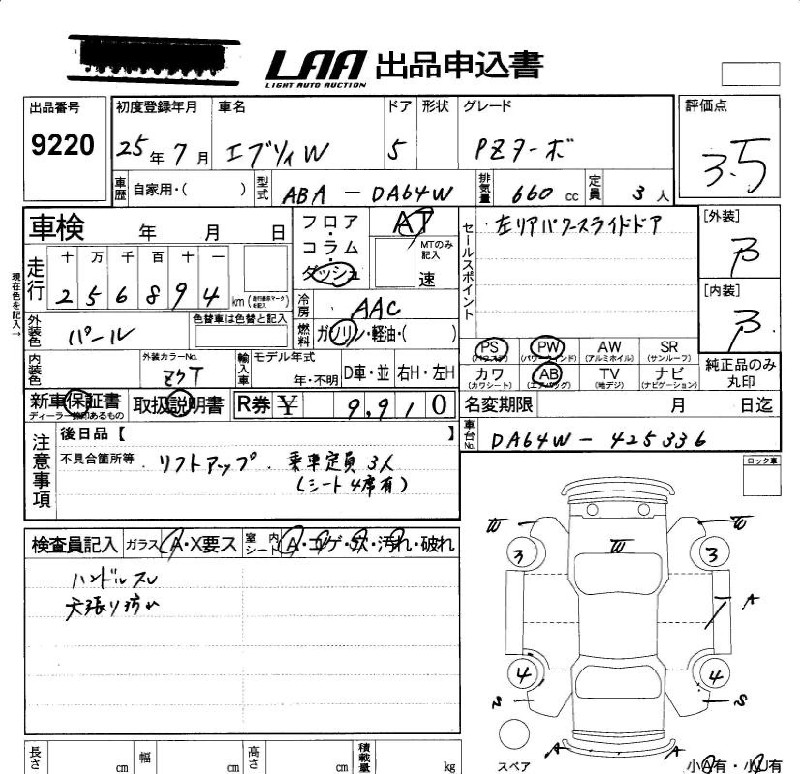 LAA 出品申込書
LIGHT AUTO AUCTION
出品番号
9220
初度登録年月
25年7月
車名
エブリィW
ドア
5
形状
グレード
PZターボ
評価点
3.5
車歴
自家用・( )
型式
ABA-DA64W
排気量
660cc
定員
3人
車検 年 月 日
現在色を記入→
走行
十 万 千 百 十 一
2 5 6 8 9 4 km
フロア・コラム・ダッシュ
AT
MTのみ記入
速
セールスポイント
左リアパワースライドドア
[外装]
B
[内装]
B
冷房
AAC
燃料
ガソリン・軽油・( )
外装色
パール
色替車は色替と記入
内装色
外装カラーNo.
Z7T
輸入車
モデル年式
年・不明
D車・並
右H・左H
PS (パワステ)
PW (パワーウインド)
AW (アルミホイル)
SR (サンルーフ)
カワ (カワシート)
AB (エアバッグ)
TV (地デジ)
ナビ (ナビゲーション)
純正品のみ丸印
新車保証書
ディーラー捺印あるもの
取扱説明書
R券 ¥ 9,910
名変期限 月 日迄
車台No.
DA64W-425336
注意事項
後日品【 】
不具合箇所等
・リフトアップ ・乗車定員3人
(シート4席有)
ロック車
検査員記入
ガラス A・X要ス
室内シート A・コゲ・穴・汚れ・破れ
ハンドルスレ
天張り汚れ
W
W
W
3
3
A
4
4
S
S
A
A
スペア
小A有・小U有
長さ cm
幅 cm
高さ cm
積載量 kg